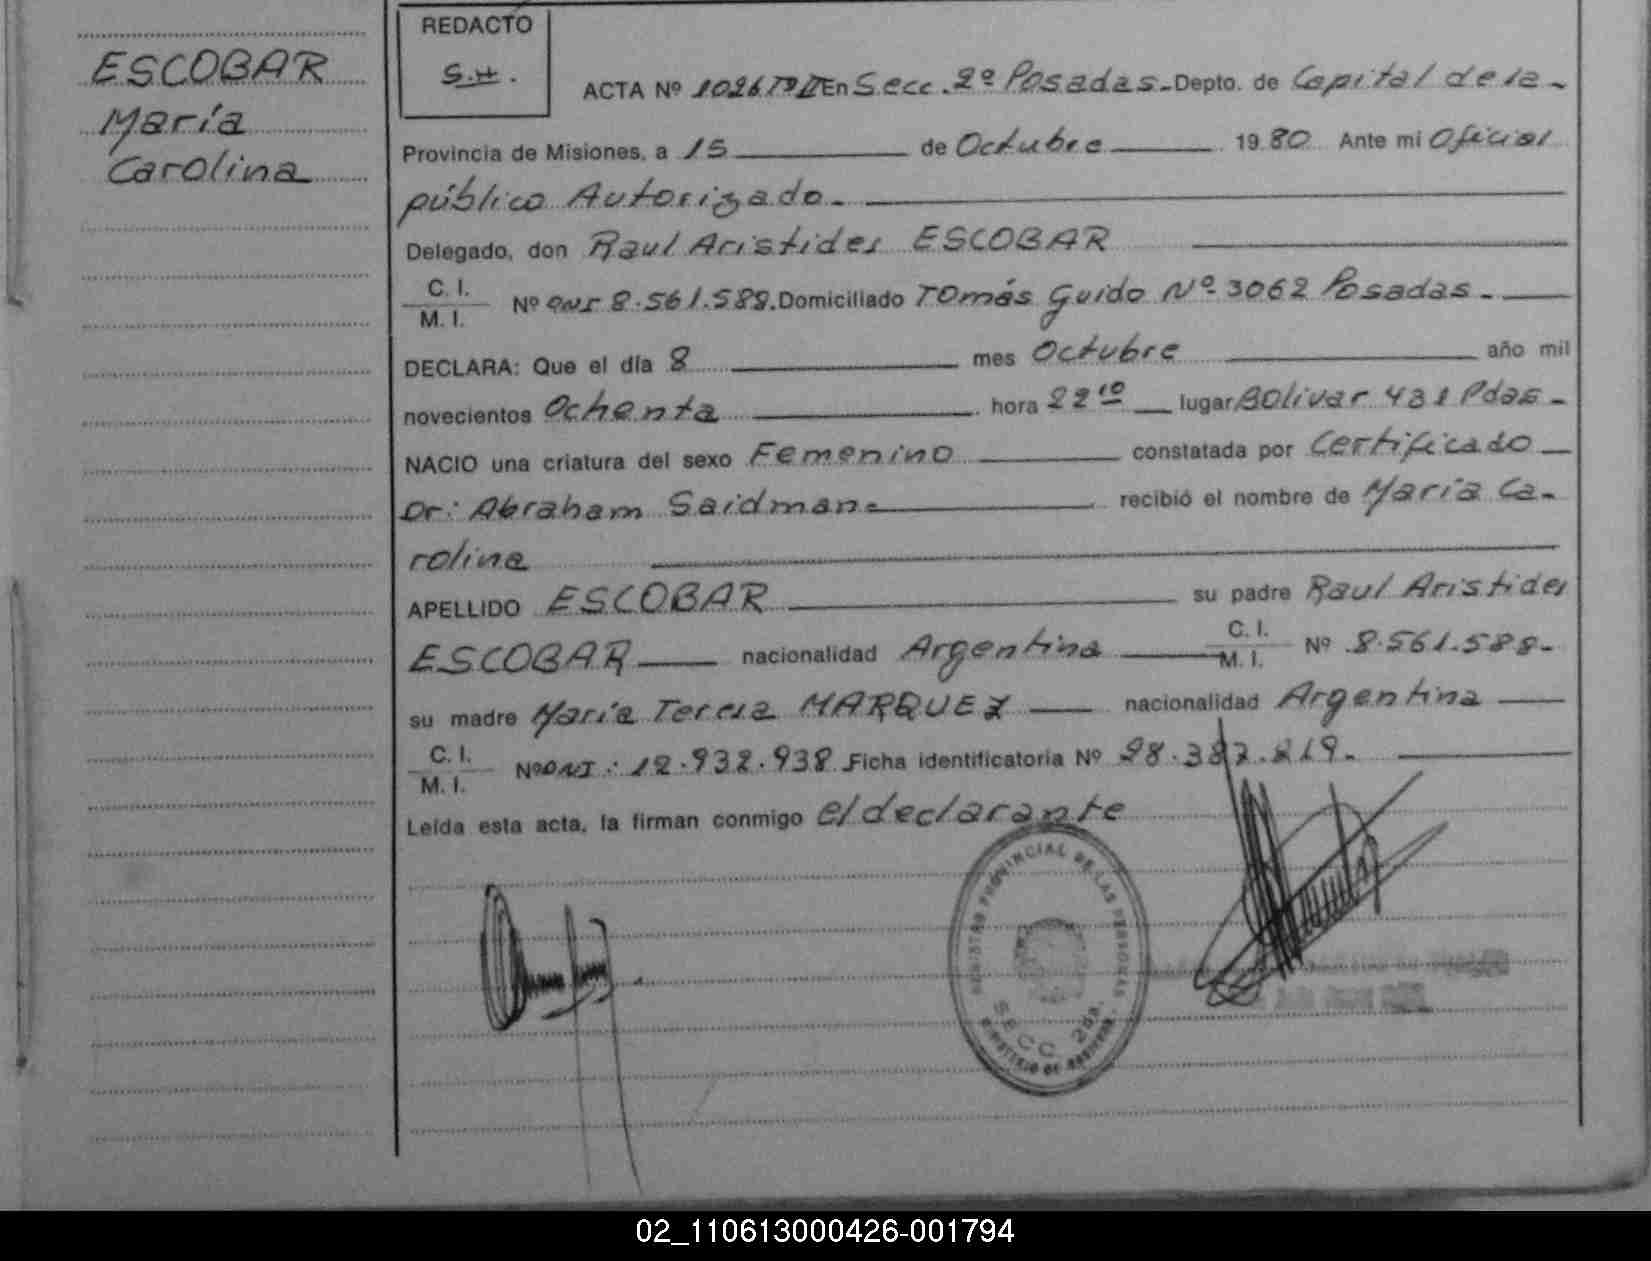 ESCOBAR
María
Carolina
REDACTO
S.H.
ACTA Nº 1026 Tº II En Secc. 2º Posadas.- Depto. de Capital de la-
Provincia de Misiones, a 15 de Octubre 1980 Ante mi Oficial
público Autorizado.-
Delegado, don Raul Aristides ESCOBAR
C. I.
M. I. Nº DNI 8.561.588. Domiciliado Tomás Guido Nº 3062 Posadas.-
DECLARA: Que el día 8 mes Octubre año mil
novecientos Ochenta hora 22 10 lugar Bolivar 431 Pdas.-
NACIO una criatura del sexo Femenino constatada por Certificado
Dr: Abraham Saidman.- recibió el nombre de María Ca-
rolina
APELLIDO ESCOBAR su padre Raul Aristides
ESCOBAR nacionalidad Argentina C. I.
M. I. Nº 8.561.588.-
su madre María Teresa MARQUEZ nacionalidad Argentina
C. I.
M. I. Nº DNI: 12.932.938 Ficha identificatoria Nº
Leída esta acta, la firman conmigo el declarante
REGISTRO PROVINCIAL DE LAS PERSONAS
SECC 2da.
02_110613000426-001794